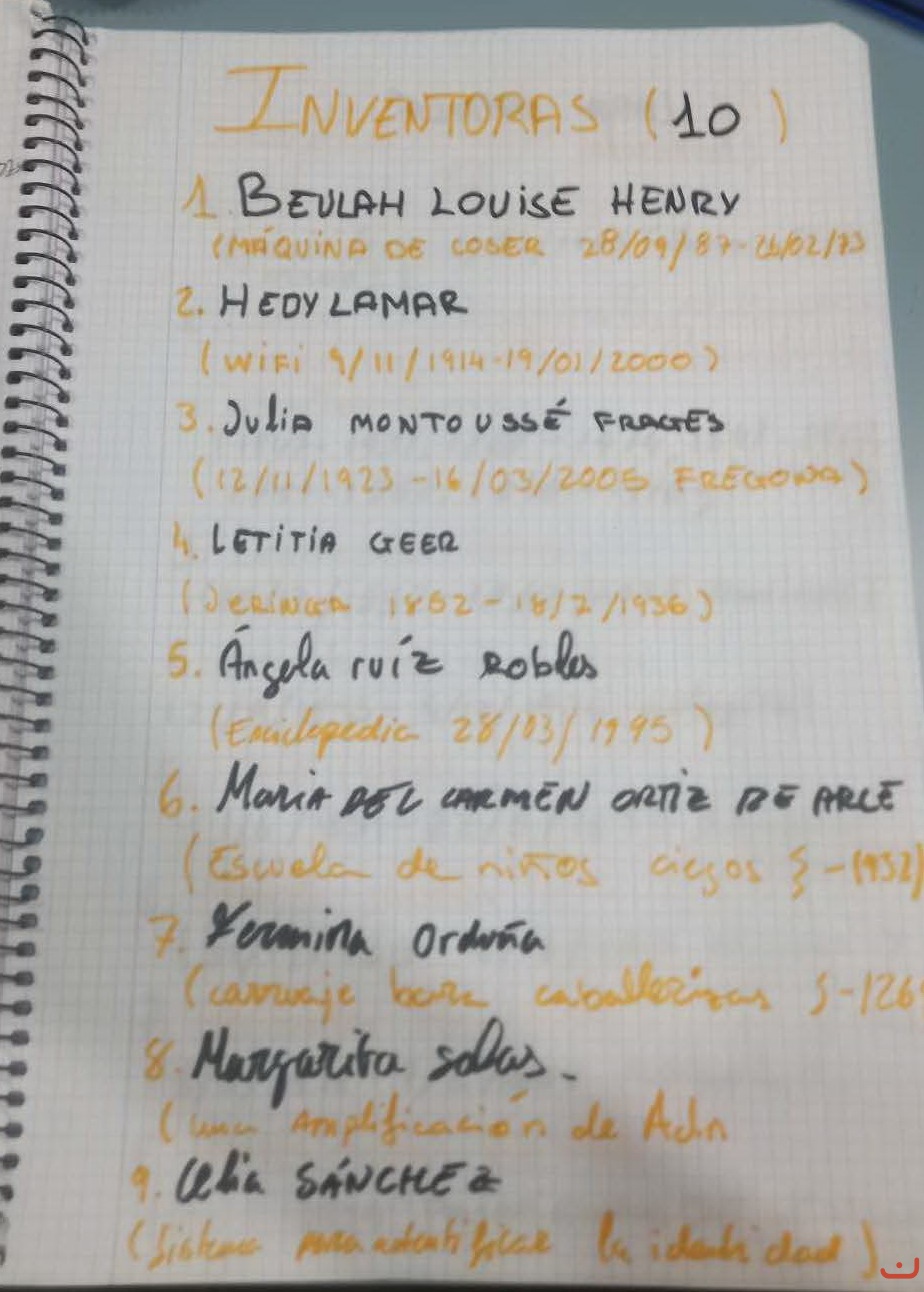 INVENTORAS (10)
1. BEULAH LOUISE HENRY
(MÁQUINA DE COSER 28/09/87-26/02/73
2. HEDY LAMAR
(WIFI 9/11/1914-19/01/2000)
3. Julia MONTOUSSÉ FRAGES
(12/11/1923-16/03/2005 FREGONA)
4. LETITIA GEER
(Jeringa 1852-18/7/1936)
5. Ángela ruíz Robles
(Enciclopedia 28/03/1995)
6. Maria DEL CARMEN ORTIZ DE ARCE
(Escuela de niños ciegos -1932)
7. Fermina Orduña
(carruaje para caballerizas -126
8. Margarita Salas.
(una amplificación de Adn
9. Celia SÁNCHEZ
(Sistema para autentificar la identidad)